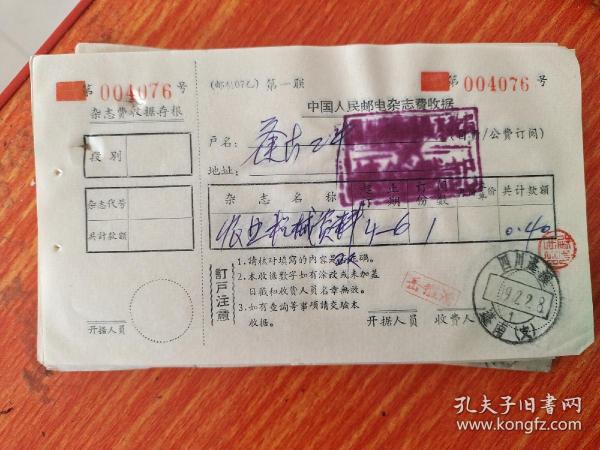 第 004076 号
杂志费收据存根
段别
杂志代号
共计款额
开据人员
(邮4107乙) 第一联
第 004076 号
中国人民邮电杂志费收据
户名：
(自费/公费订阅)
地址：
杂志名称 起止订期 订阅份数 共计款额
农业机械资料 4-6 1 0.40
订户注意
1.请核对填写的内容是否正确。
2.本收据数字如有涂改或未加盖
日戳和收费人员名章无效。
3.如有查询等事项请交验本
收据。
开据人员 收费人
四川
孔夫子旧书网
www.kongfz.com